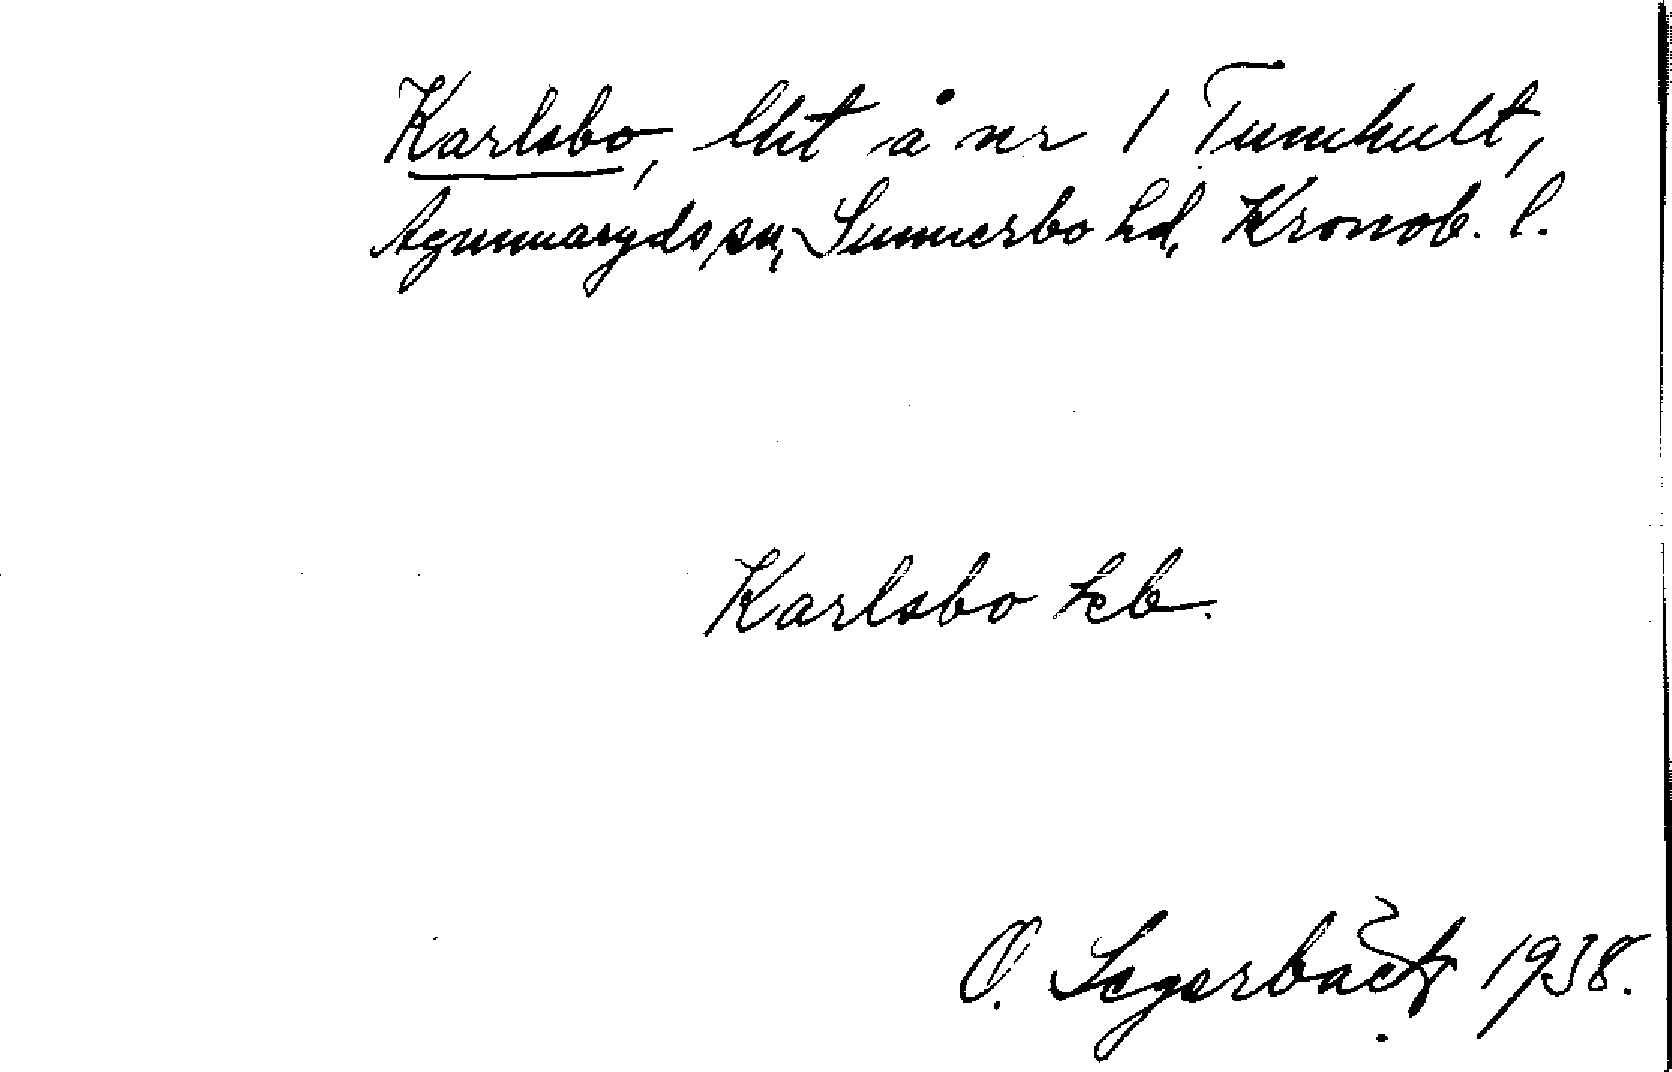 Karlsbo, lht å nr 1 Tumhult,
Agunnaryds sn, Sunnerbo hd, Kronob. l.
Karlsbo hcb.
O. Segerbäck 1938.